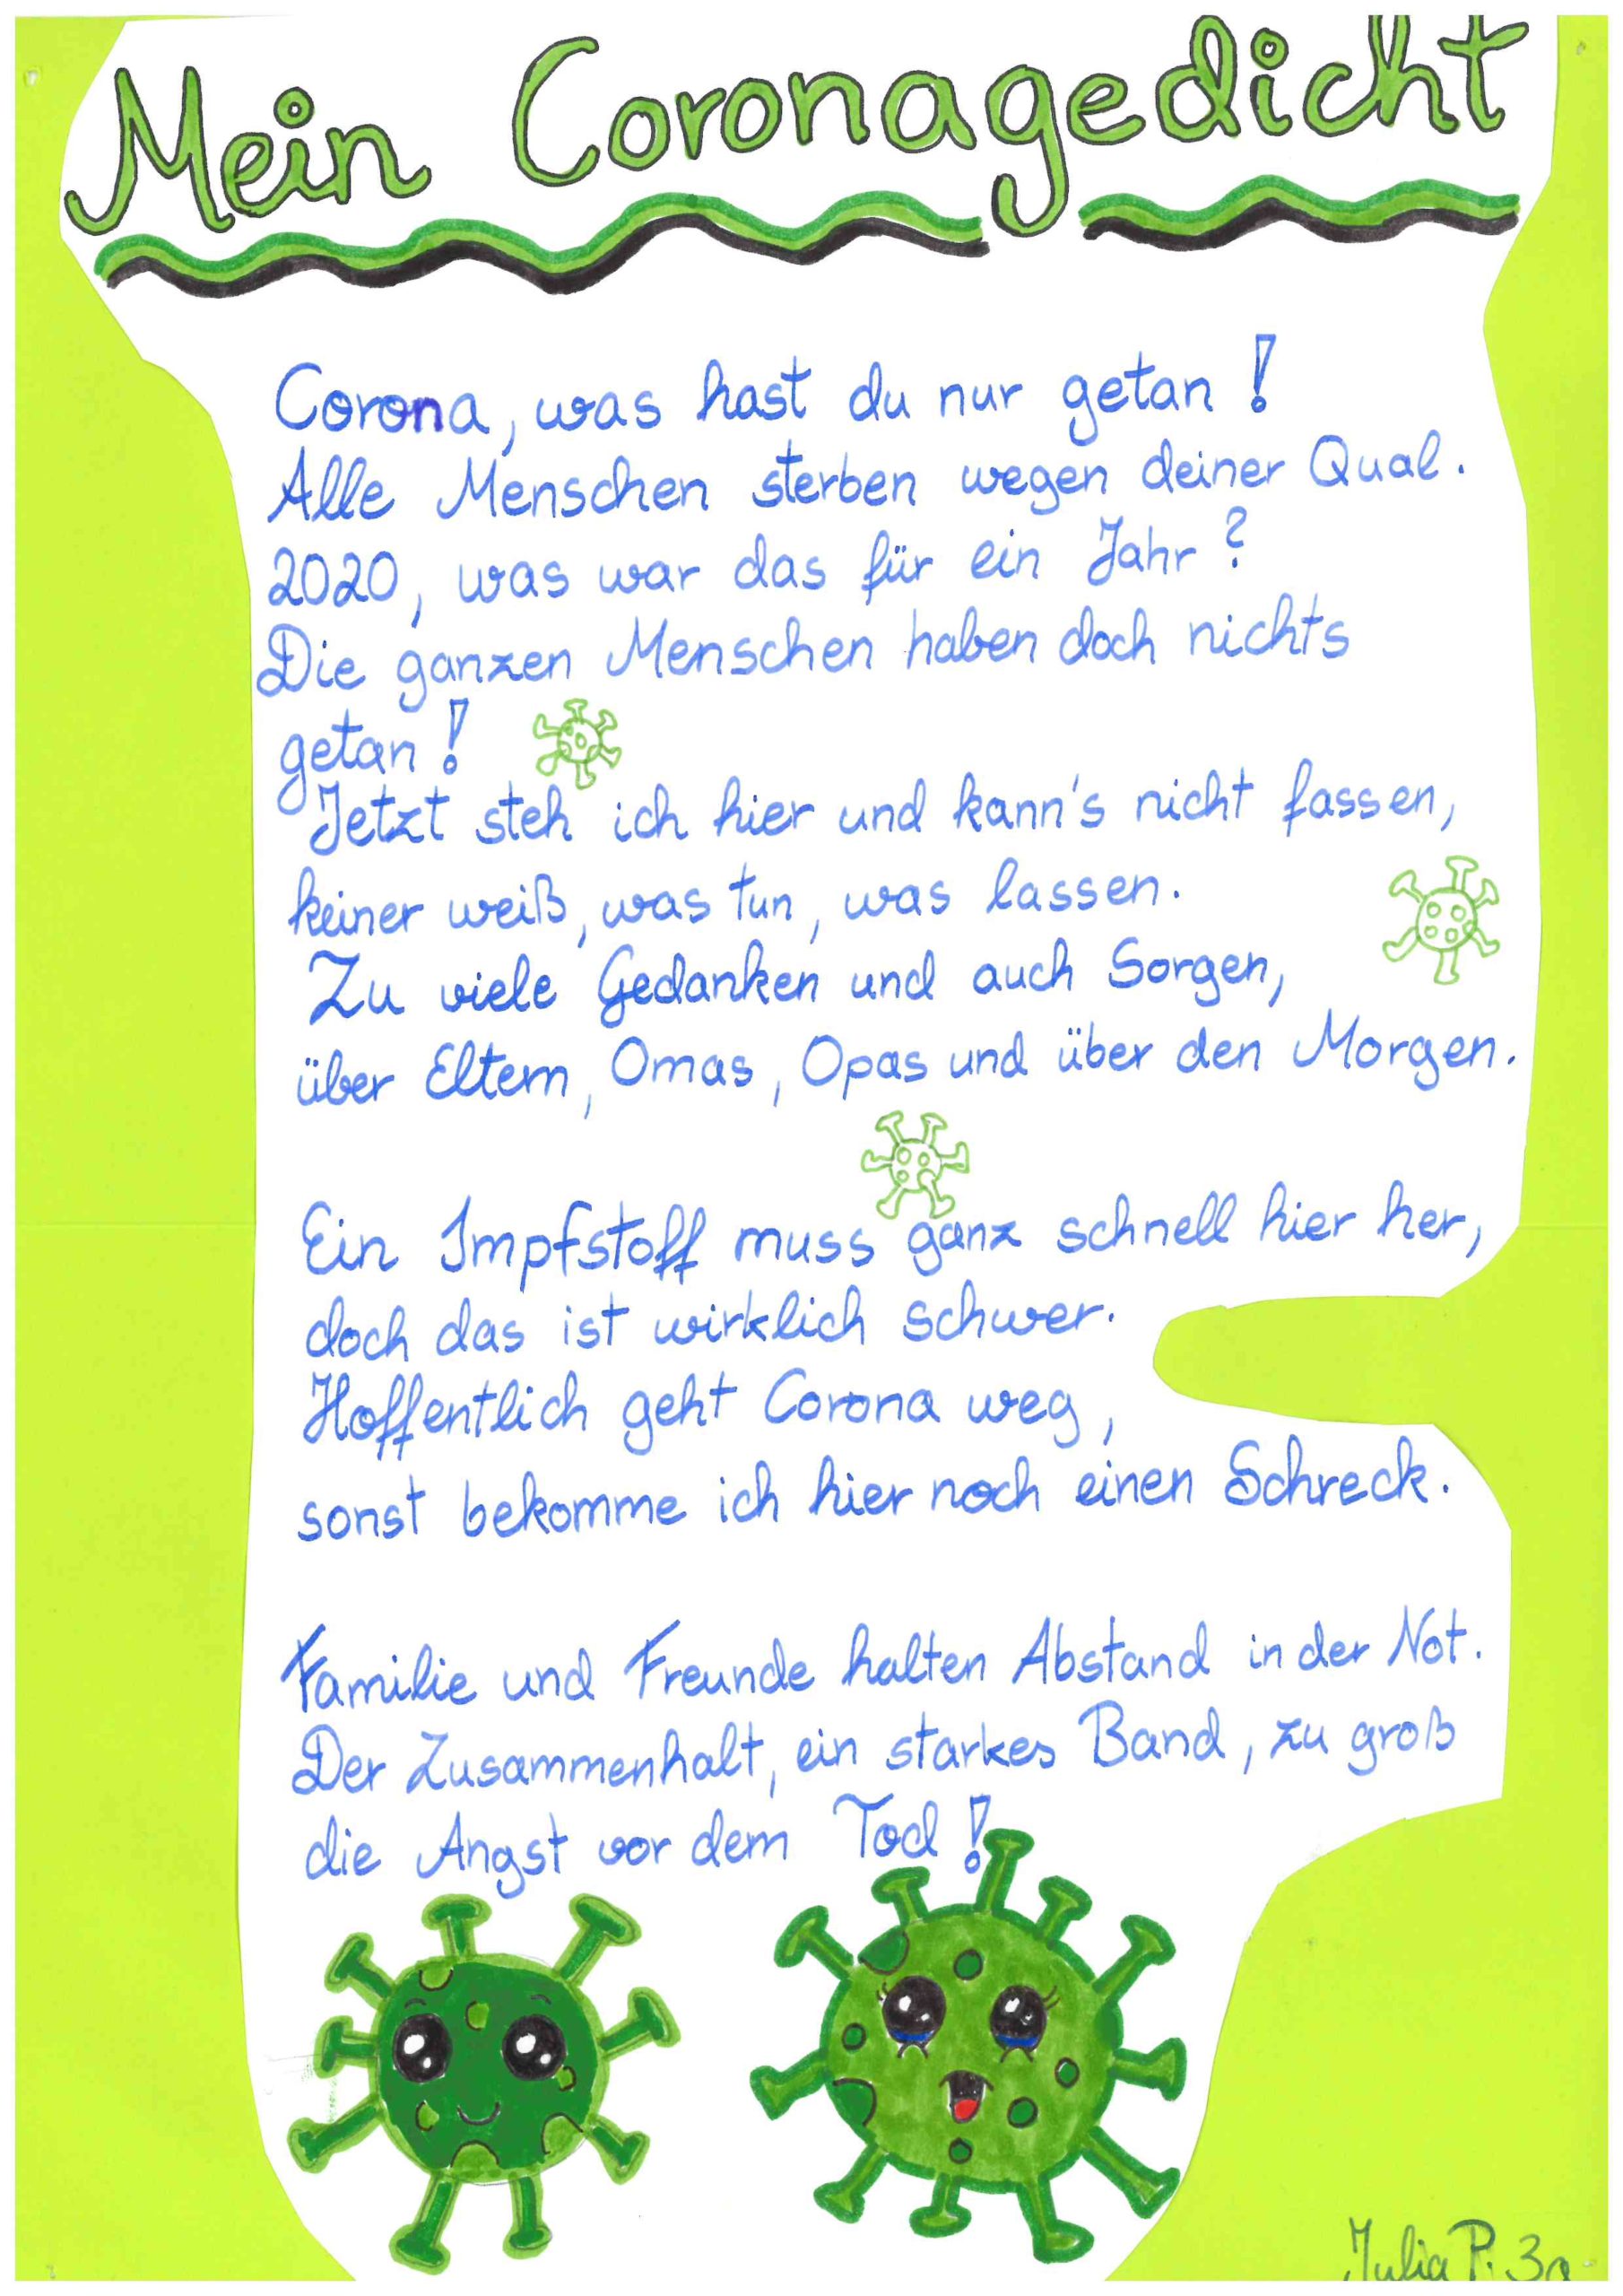 Mein Coronagedicht
Corona, was hast du nur getan!
Alle Menschen sterben wegen deiner Qual.
2020, was war das für ein Jahr?
Die ganzen Menschen haben doch nichts
getan!
Jetzt steh ich hier und kann's nicht fassen,
keiner weiß, was tun, was lassen.
Zu viele Gedanken und auch Sorgen,
über Eltern, Omas, Opas und über den Morgen.
Ein Impfstoff muss ganz schnell hier her,
doch das ist wirklich schwer.
Hoffentlich geht Corona weg,
sonst bekomme ich hier noch einen Schreck.
Familie und Freunde halten Abstand in der Not.
Der Zusammenhalt, ein starkes Band, zu groß
die Angst vor dem Tod!
Julia P. 3a